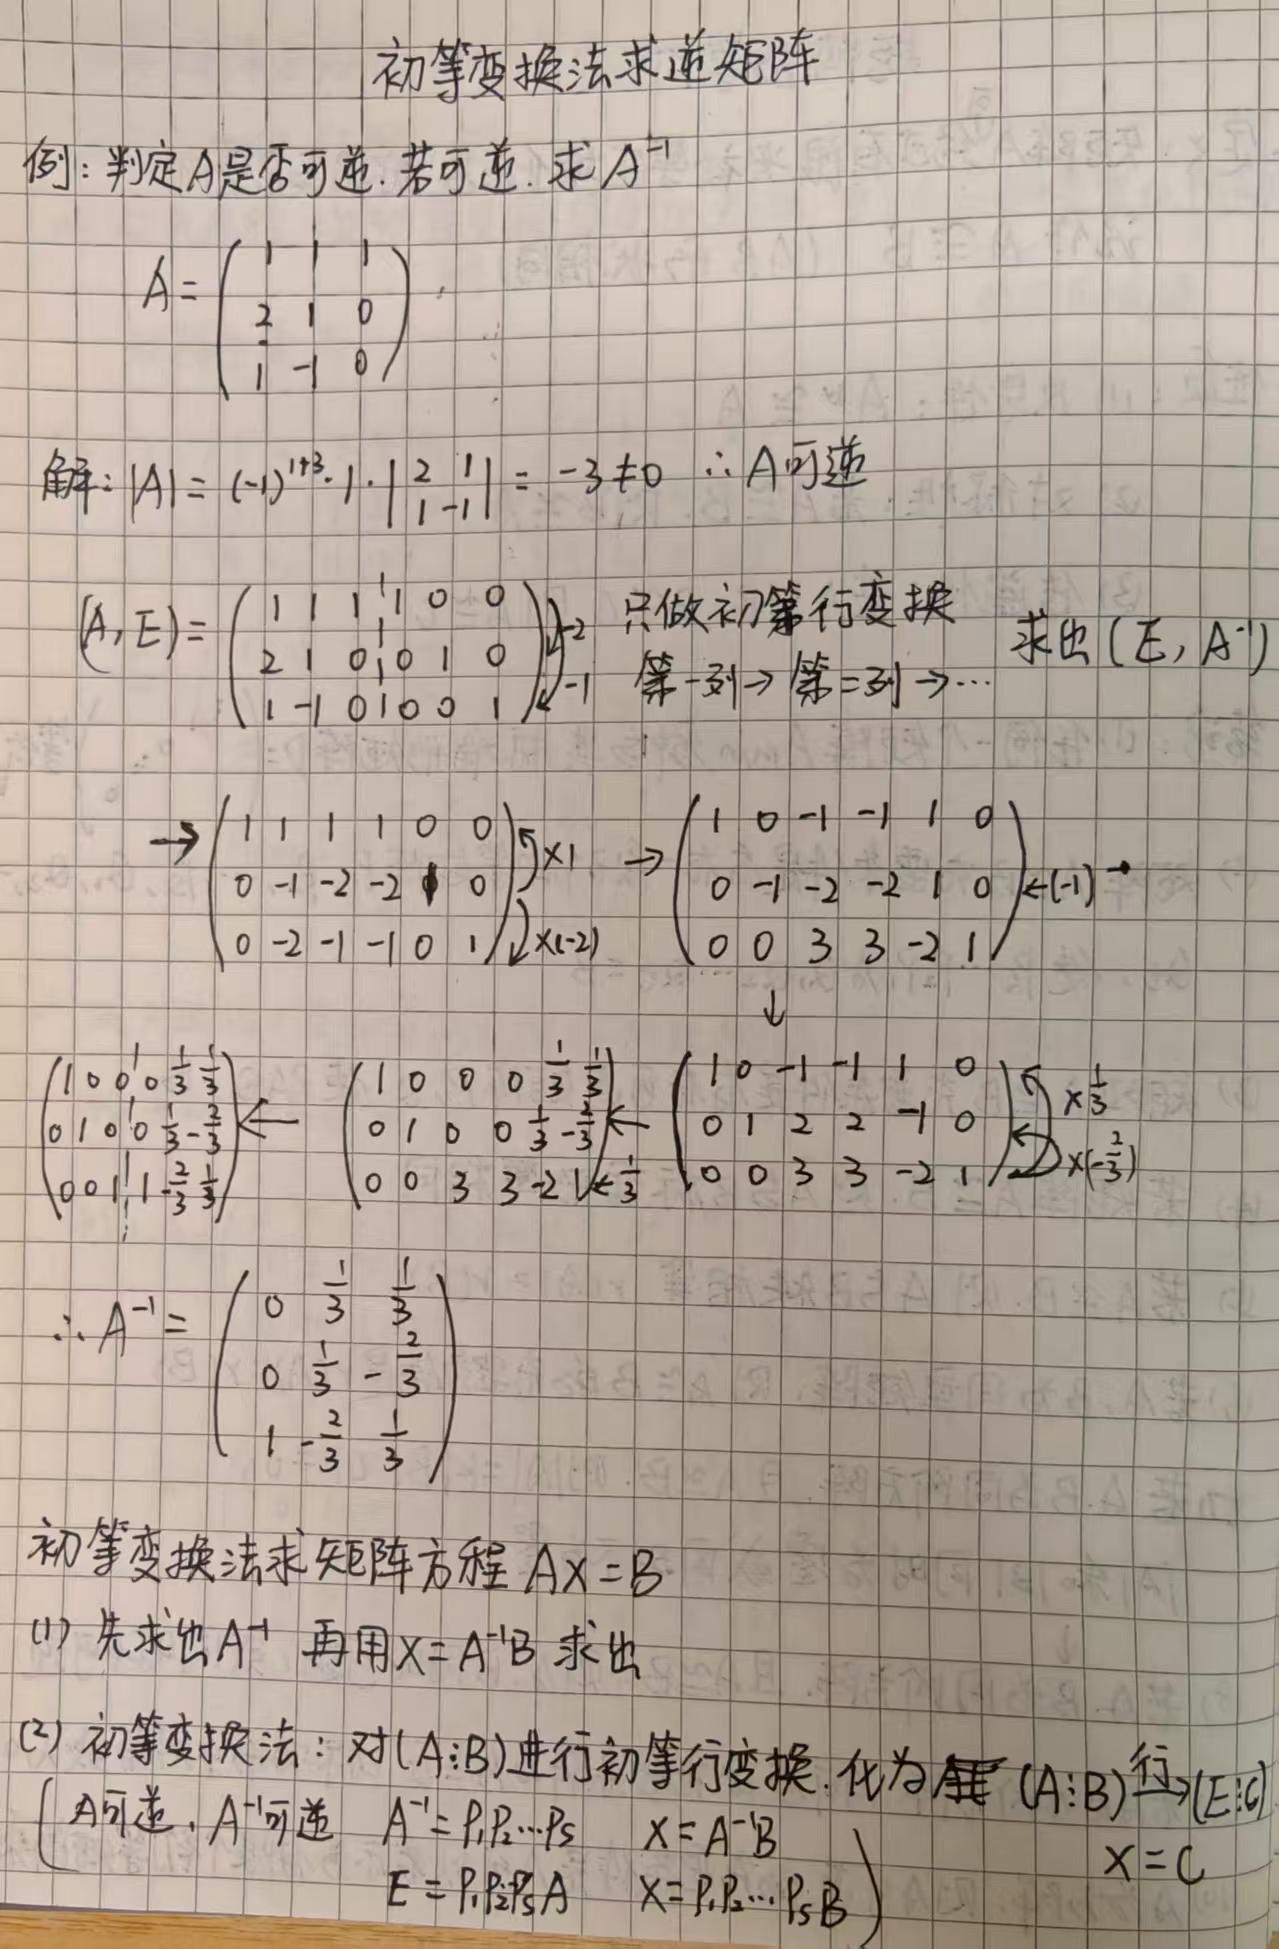 初等变换法求逆矩阵
例：判定A是否可逆.若可逆.求A⁻¹
A = ( 1 1 1
2 1 0
1 -1 0 )
解：|A| = (-1)¹⁺³·1·| 2 1 ; 1 -1 | = -3 ≠ 0 ∴ A可逆
(A, E) = ( 1 1 1 1 0 0
2 1 0 0 1 0
1 -1 0 0 0 1 ) -2 -1
只做初等行变换
第一列→第二列→…
求出(E, A⁻¹)
→ ( 1 1 1 1 0 0
0 -1 -2 -2 1 0
0 -2 -1 -1 0 1 ) ×1 ×(-2)
→ ( 1 0 -1 -1 1 0
0 -1 -2 -2 1 0
0 0 3 3 -2 1 ) ←(-1) →
↓
( 1 0 -1 -1 1 0
0 1 2 2 -1 0
0 0 3 3 -2 1 ) ×1/3 ×(-2/3)
← ( 1 0 0 0 1/3 1/3
0 1 0 0 1/3 -2/3
0 0 3 3 -2 1 ) ←1/3
← ( 1 0 0 0 1/3 1/3
0 1 0 0 1/3 -2/3
0 0 1 1 -2/3 1/3 )
∴ A⁻¹ = ( 0 1/3 1/3
0 1/3 -2/3
1 -2/3 1/3 )
初等变换法求矩阵方程 AX=B
(1) 先求出A⁻¹ 再用X=A⁻¹B 求出
(2) 初等变换法：对(A⋮B)进行初等行变换.化为 (A⋮B) 行→ (E⋮C)
( A可逆.A⁻¹可逆 A⁻¹=P₁P₂…Ps X=A⁻¹B
X=C
E=P₁P₂…PsA X=P₁P₂…PsB )